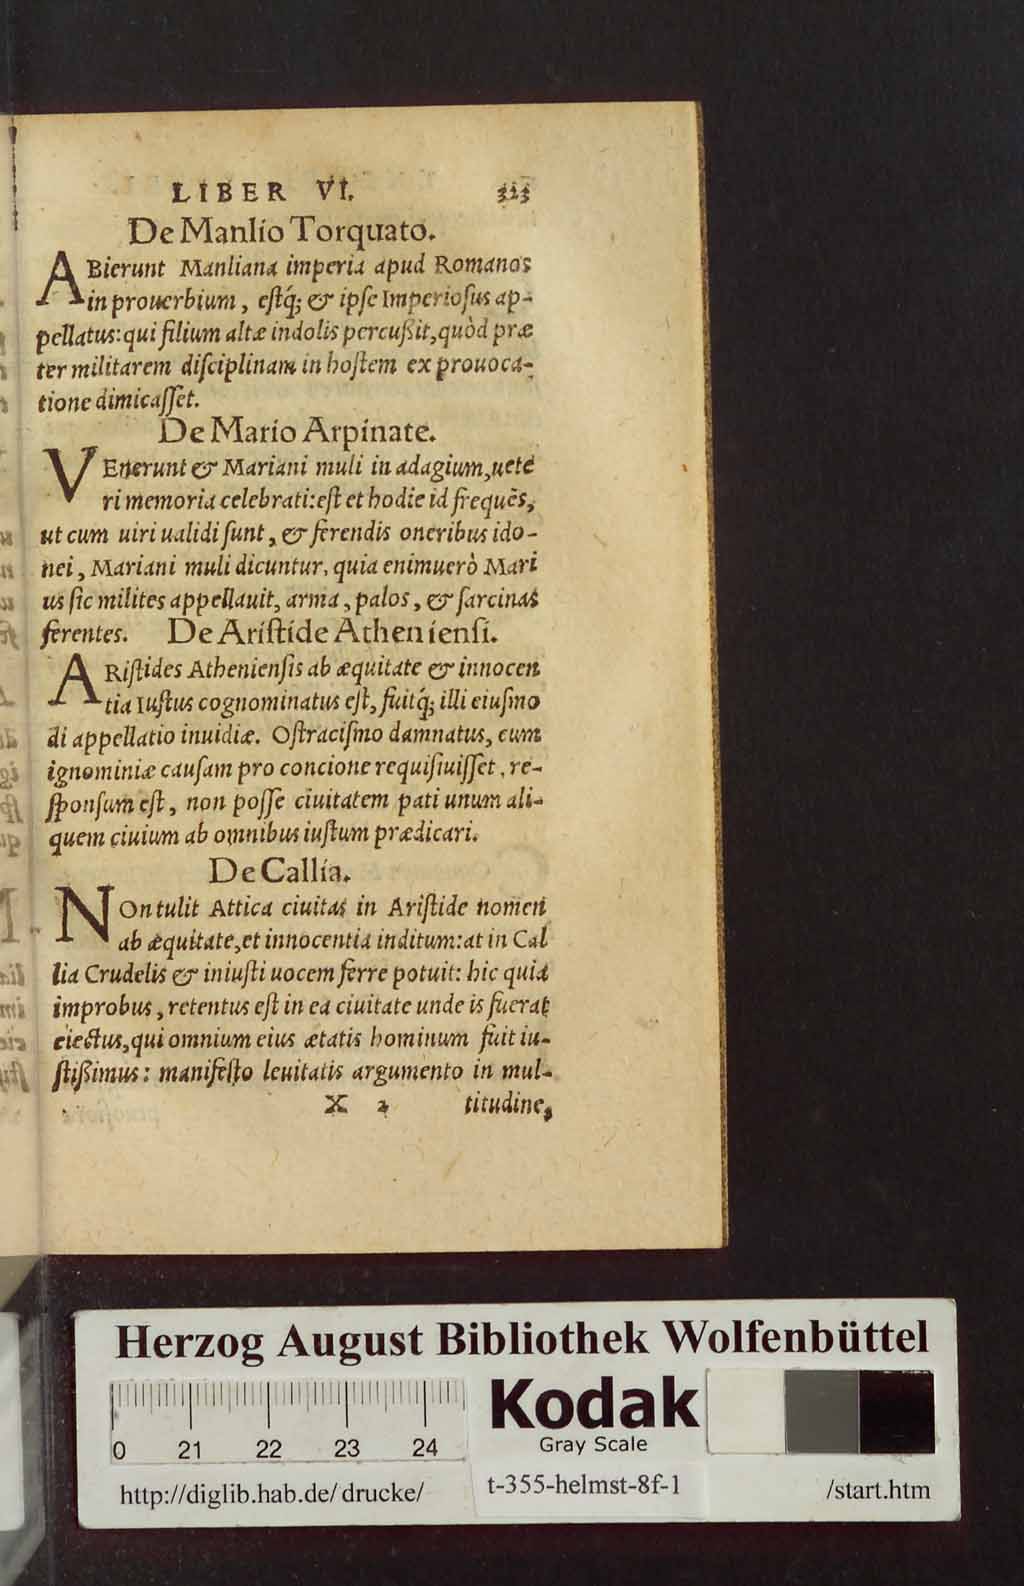 LIBER VI. 323
De Manlio Torquato.
ABierunt Manliana imperia apud Romanos
in prouerbium, eſtq́; & ipſe Imperioſus ap-
pellatus: qui filium altæ indolis percußit, quòd præ
ter militarem diſciplinam in hoſtem ex prouoca-
tione dimicaſſet.
De Mario Arpinate.
VEnerunt & Mariani muli in adagium, uete
ri memoria celebrati: eſt et hodie id frequẽs,
ut cum uiri ualidi ſunt, & ferendis oneribus ido-
nei, Mariani muli dicuntur, quia enimuerò Mari
us ſic milites appellauit, arma, palos, & ſarcinas
ferentes. De Ariſtide Athenienſi.
ARiſtides Athenienſis ab æquitate & innocen
tia Iuſtus cognominatus eſt, fuitq́; illi eiuſmo
di appellatio inuidiæ. Oſtraciſmo damnatus, cum
ignominiæ cauſam pro concione requiſiuiſſet, re-
ſponſum eſt, non poſſe ciuitatem pati unum ali-
quem ciuium ab omnibus iuſtum prædicari.
De Callia.
NOn tulit Attica ciuitas in Ariſtide nomen
ab æquitate, et innocentia inditum: at in Cal
lia Crudelis & iniuſti uocem ferre potuit: hic quia
improbus, retentus eſt in ea ciuitate unde is fuerat
eiectus, qui omnium eius ætatis hominum fuit iu-
ſtißimus: manifeſto leuitatis argumento in mul-
X 2 titudine,
Herzog August Bibliothek Wolfenbüttel
0 21 22 23 24
Kodak
Gray Scale
http://diglib.hab.de/drucke/ t-355-helmst-8f-1 /start.htm